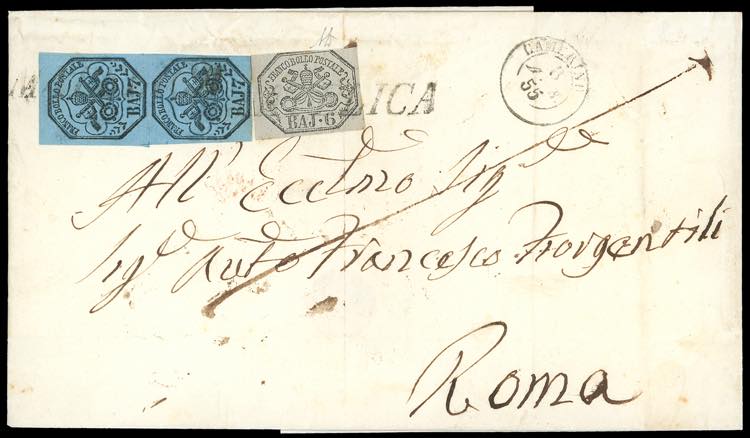 FRANCO BOLLO POSTALE BAJ. 7
FRANCO BOLLO POSTALE BAJ. 7
FRANCO BOLLO POSTALE BAJ. 6
LICA
CAMERINO
55
All' Eccl͞mo Sig͞e
Sig͞e Francesco
Roma